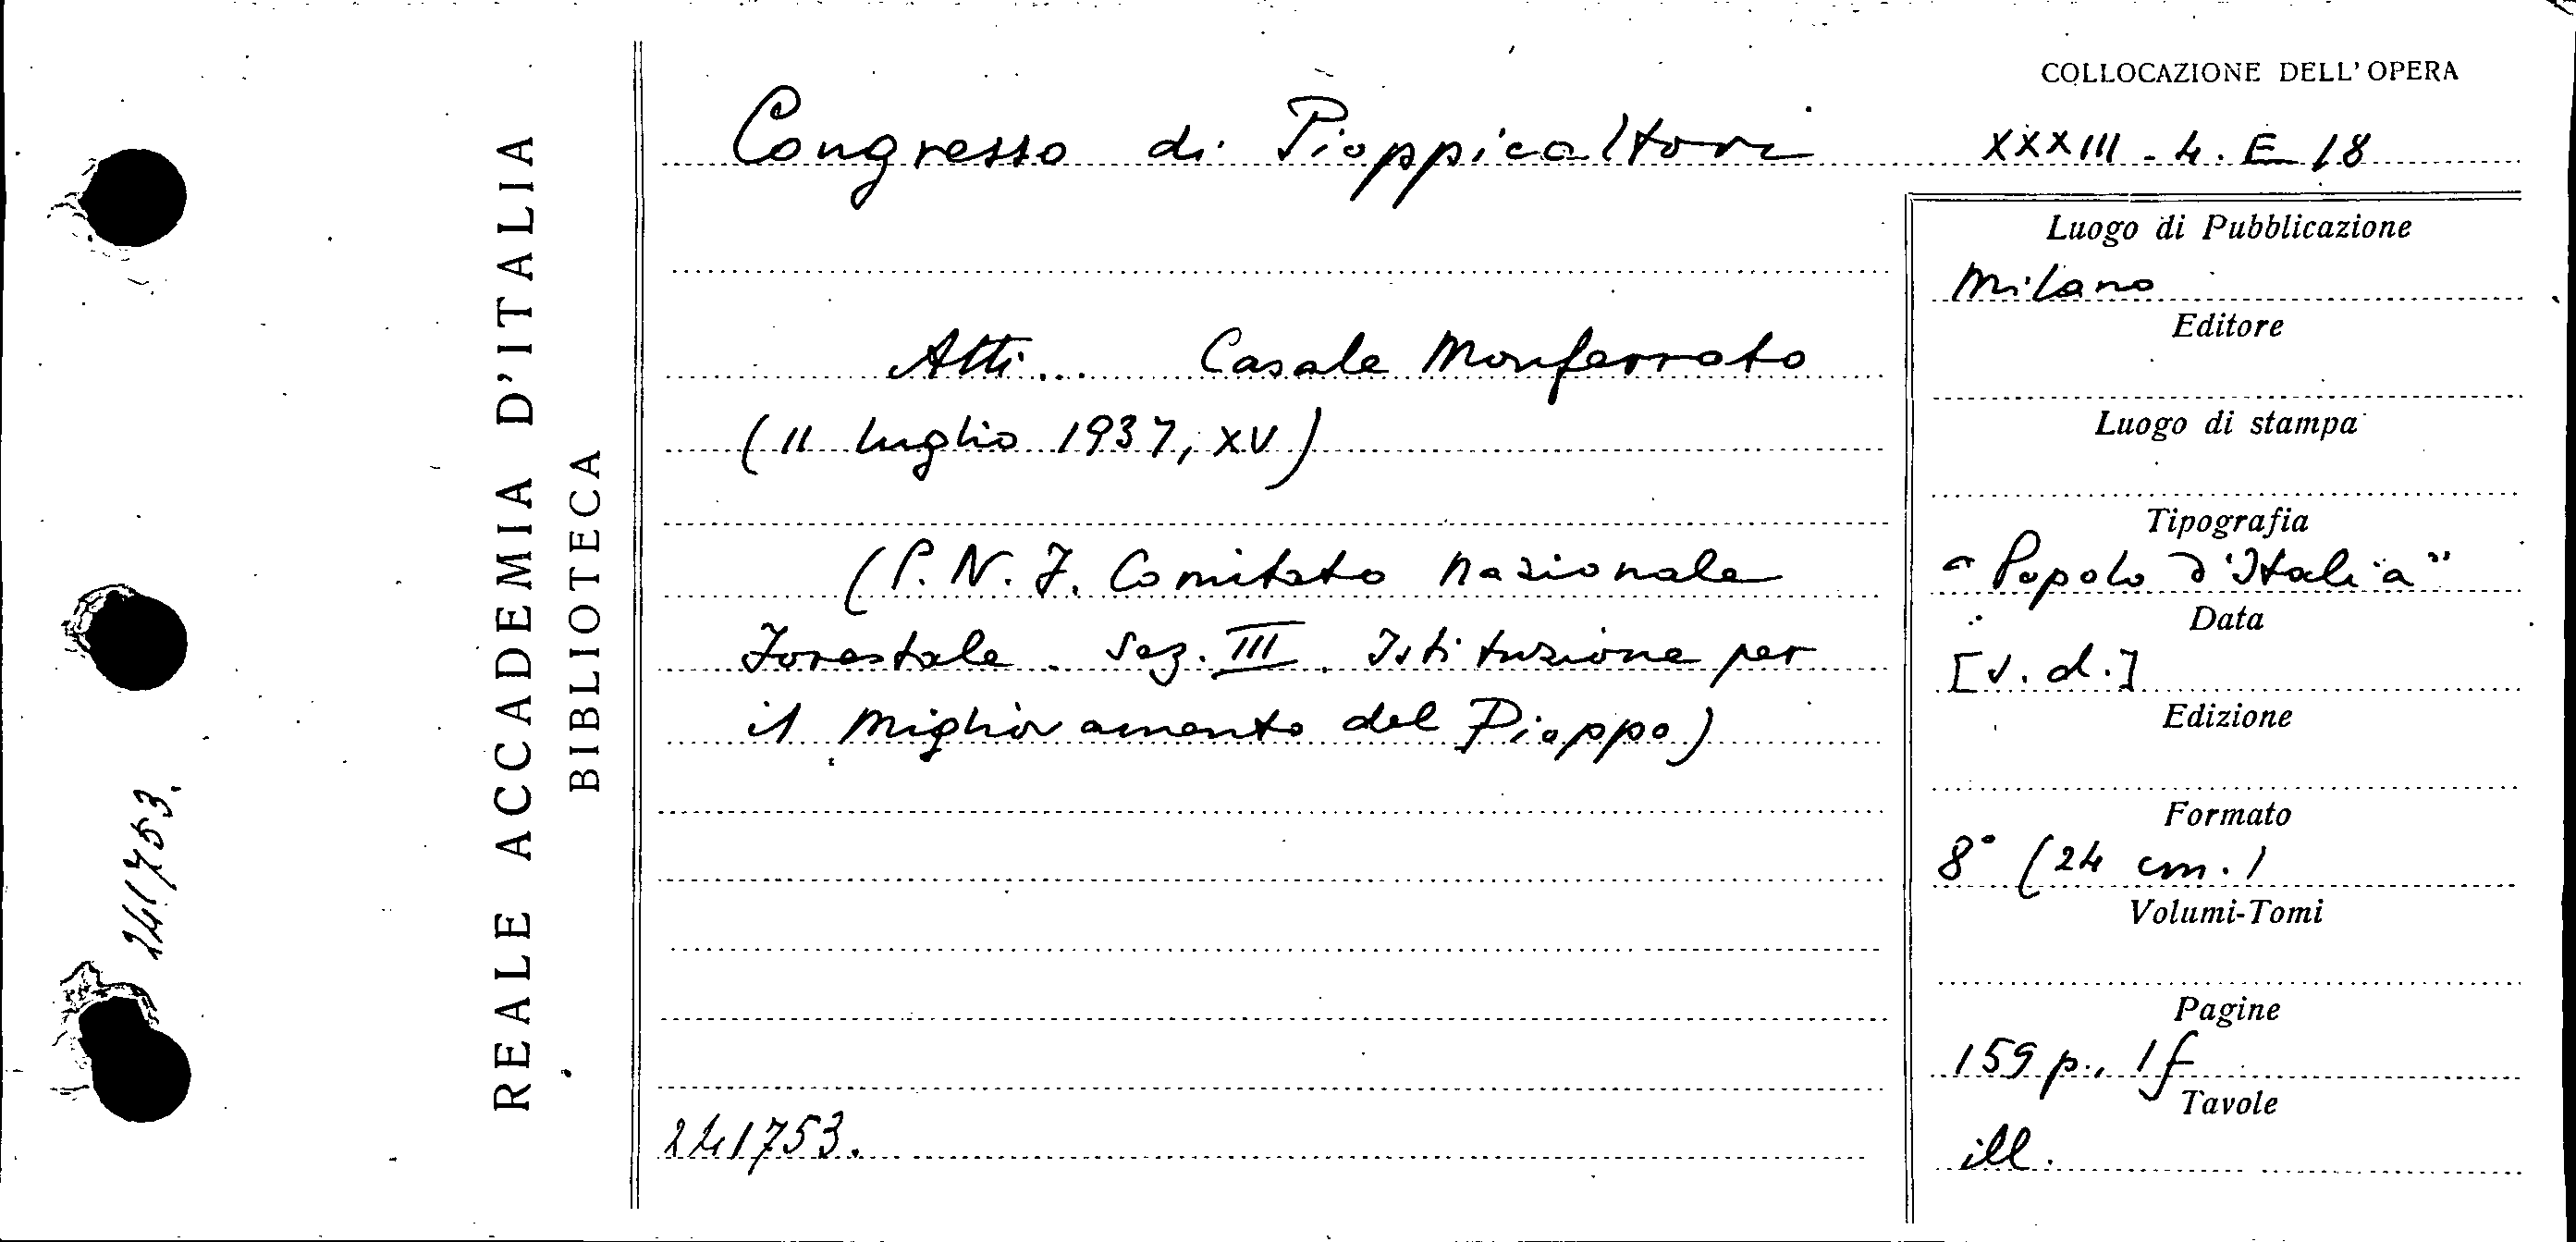 REALE ACCADEMIA D'ITALIA
BIBLIOTECA
241753.
Congresso di Pioppicoltori
Atti... Casale Monferrato
(11 luglio 1937, XV)
(P. N. F. Comitato Nazionale
Forestale. Sez. III. Istituzione per
il Miglioramento del Pioppo)
241753.
COLLOCAZIONE DELL'OPERA
XXXIII - 4. E 18
Luogo di Pubblicazione
Milano
Editore
Luogo di stampa
Tipografia
"Popolo d'Italia"
Data
[s. d.]
Edizione
Formato
8° (24 cm.)
Volumi-Tomi
Pagine
159 p., 1 f
Tavole
ill.